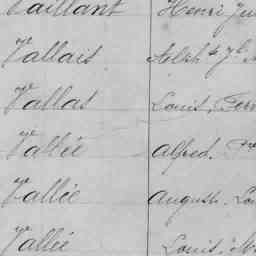 Vaillant Henri
Vallais
Vallas Louis,
Vallée Alfred.
Vallée August.
Vallée Louis.